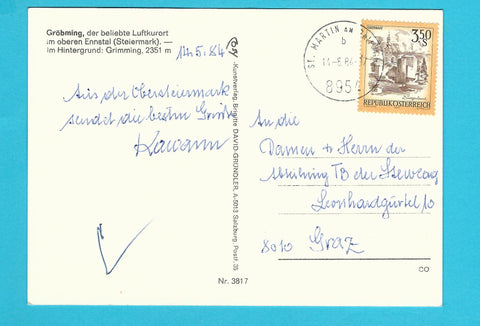 Gröbming, der beliebte Luftkurort
im oberen Ennstal (Steiermark). —
Im Hintergrund: Grimming, 2351 m
12.5.84
Aus der Obersteiermark
sendet die besten Grüße
-Kunstverlag, Brigitte DAVID-GRÜNDLER, A-5013 Salzburg, Postf. 35
Nr. 3817
ST. MARTIN AM
b
-5.84-
8954
3.50
S
REPUBLIK ÖSTERREICH
An die
Damen + Herrn der
Abteilung TB der Steweag
Leonhardgürtel 10
8010 Graz
CO